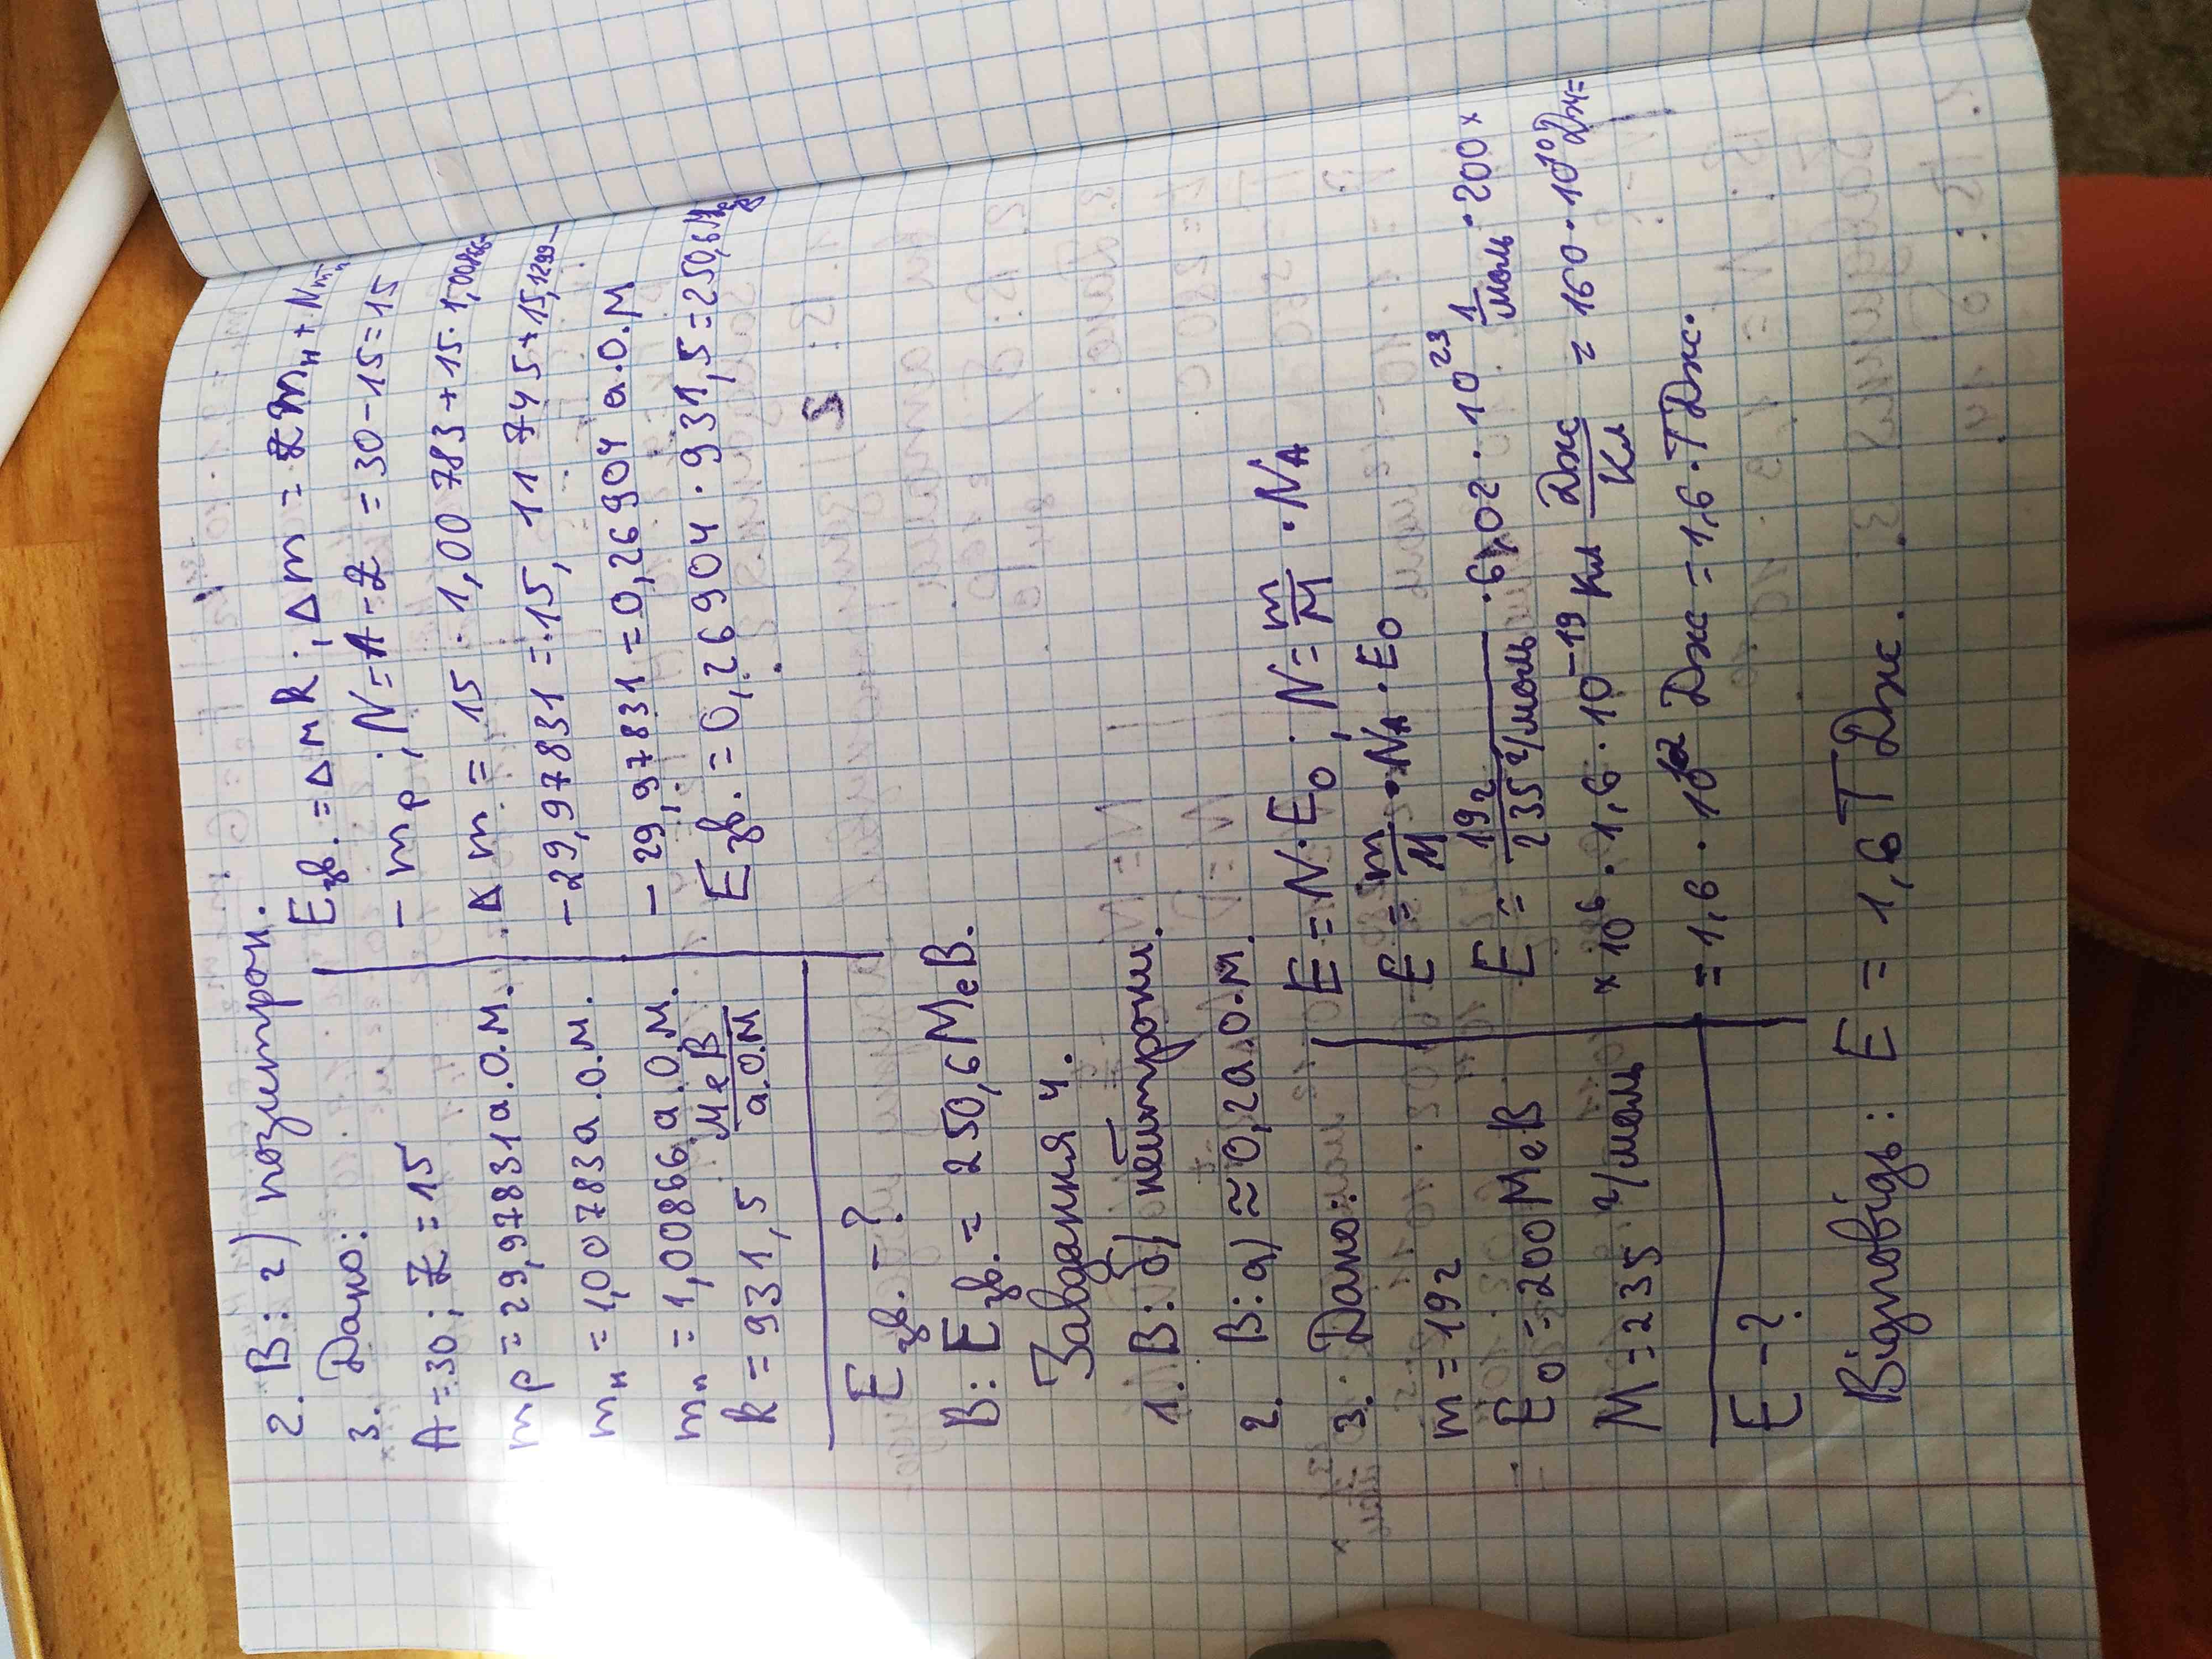 2. В: г) позитрон.
3. Дано:
A = 30; Z = 15
mр = 29,97831 а.О.М.
mн = 1,00783 а.О.М.
mn = 1,00866 а.О.М.
k = 931,5 МеВ/а.О.М
Eзв. - ?
Eзв. = Δmk; Δm = Zmн + Nmn
- mр; N = A - Z = 30 - 15 = 15
Δm = 15 · 1,00783 + 15 · 1,00866 -
- 29,97831 = 15,11745 + 15,1299 -
- 29,97831 = 0,26904 а.О.М
Eзв. = 0,26904 · 931,5 = 250,6 МеВ
В: Eзв. = 250,6 МеВ.
Завдання 4.
1. В: б) нейтрони.
2. В: а) ≈ 0,2 а.О.М.
3. Дано:
m = 19г
E0 = 200 МеВ
M = 235 г/моль
E - ?
E = N · E0; N = m/M · NA
E = m/M · NA · E0
E = 19г/235 г/моль · 6,02 · 10^23 1/моль · 200 ×
× 10^6 · 1,6 · 10^-19 Кл Дж/Кл = 160 · 10^10 Дж =
= 1,6 · 10^12 Дж = 1,6 · ТДж.
Відповідь: E = 1,6 ТДж.